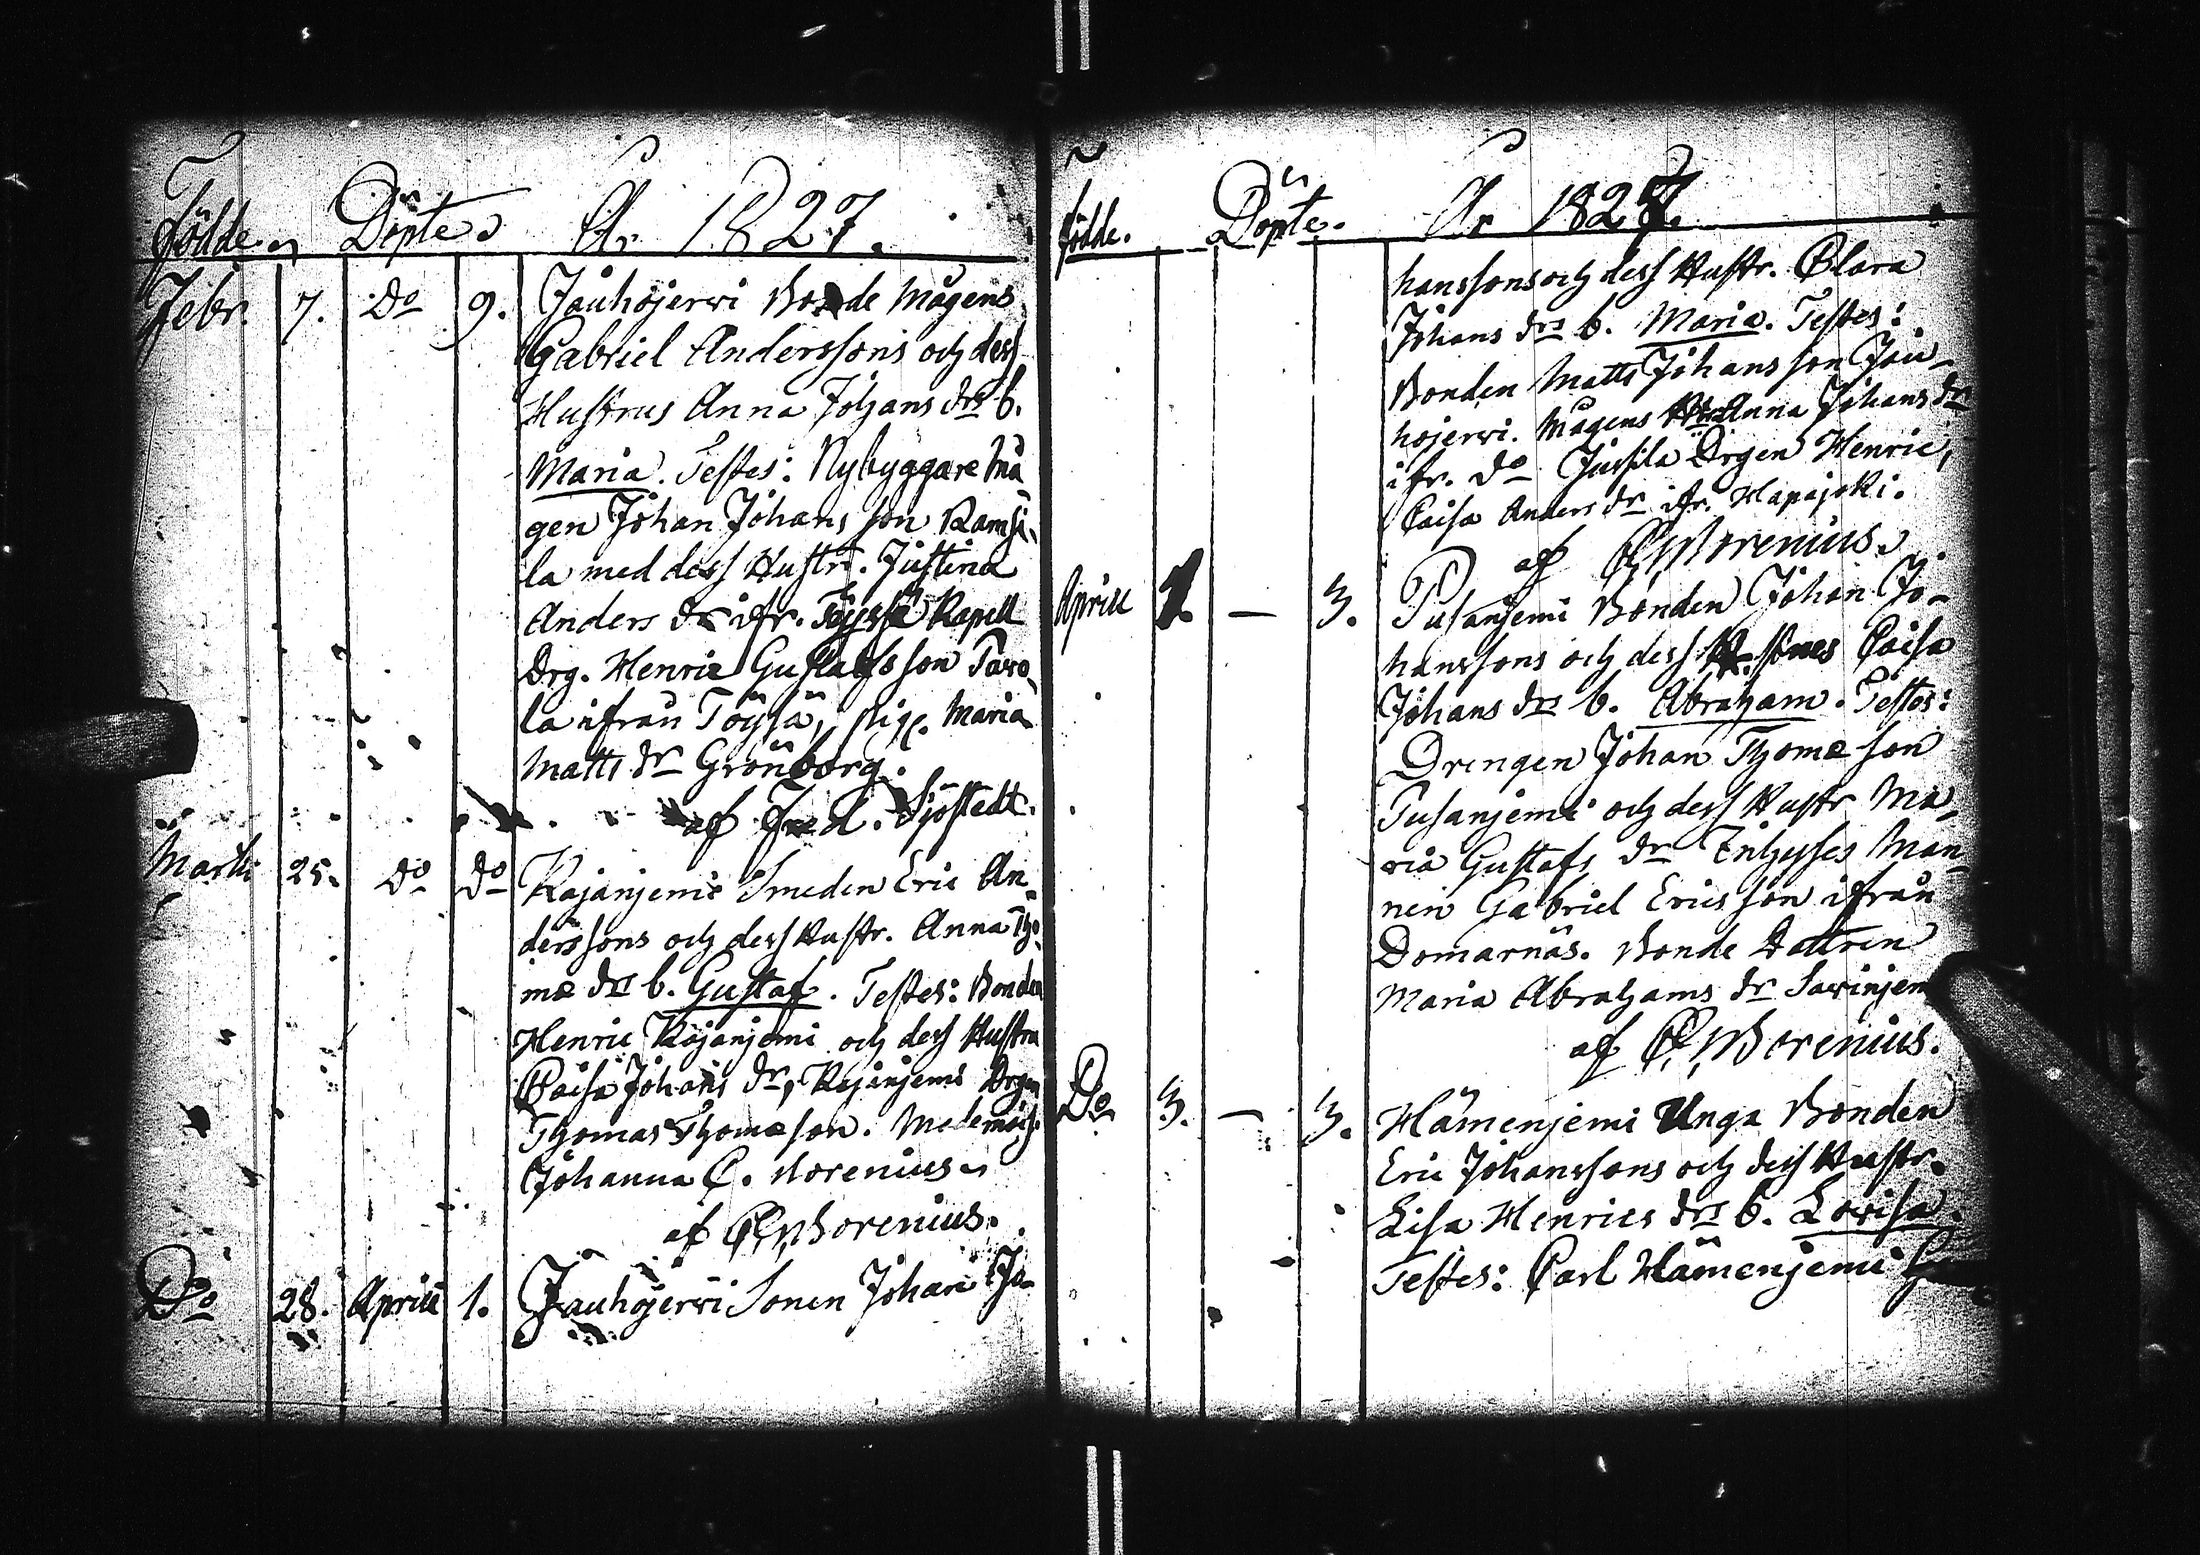 Födde. Döpte År 1827.
Febr. 7. Do 9. Jauhojerwi Bonde Mågens
Gabriel Anderssons och dess
Hustrus Anna Johans drs b.
Maria. Testes: Nybyggare Må
gen Johan Johans son Ramsi-
la med dess Hustr. Justina
Anders dr ifr. Töysä Kapell
Drg. Henric Gustafs son Tavo-
la ifrån Töysä, pig. Maria
Matts dr Grönborg.
af Fred. Sjöstedt.
Martii 25. Do Do Kajanjemi Smeden Eric An-
derssons och dess Hustr. Anna Tho-
mæ drs b. Gustaf. Testes: Bonden
Henric Kajanjemi och dess Hustru
Caisa Johans dr, Kajanjemi Drgen
Thomas Thomæson. Mademois.
Johanna C. Borenius
af Borenius.
Do 28. Aprill 1. Jauhojerwi Sonen Johan Jo-
födde. Döpte. År 1827.
hanssons och dess Hustr. Clara
Johans drs b. Maria. Testes:
Bonden Matts Johans son Jau-
hojerwi. Mågens Anna Johans dr
ifr. Do Jussila Drgen Henric,
Caisa Anders dr ifr. Hapajoki.
af Borenius.
Aprill 1. — 3. Pusanjemi Bonden Johan Jo-
hanssons och dess Caisa
Johans drs b. Abraham. Testes:
Drengen Johan Thomæ son
Pusanjemi och dess Hustr Ma-
ria Gustafs dr Inhyses Man-
nen Gabriel Erics son ifrån
Domarnäs. Bonde Dottren
Maria Abrahams dr Savinjem
af Borenius.
Do 3. — 3. Hämenjemi Unga Bonden
Eric Johanssons och dess Hustr.
Lisa Henrics drs b. Lovisa.
Testes: Carl Hämenjemi